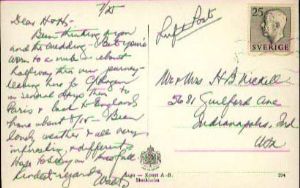 7/25
Dear H & H:-
Been thinking of you
and the wedding - But you're
won to a nub - about
halfway thru our journey -
leaving here for Copenhagen
in several days then to
Paris & back to England
home about 9/15 - Been
lovely weather & all very
interesting & different
Hope to see you this fall
kindest regards
Luft Post
25
SVERIGE
Mr & Mrs H B
5681 Guilford Ave
Indianapolis, Ind
USA
Stockholm